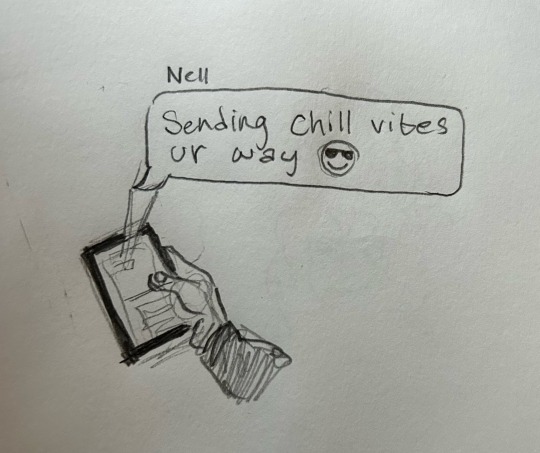 Nell
Sending chill vibes
ur way 😎